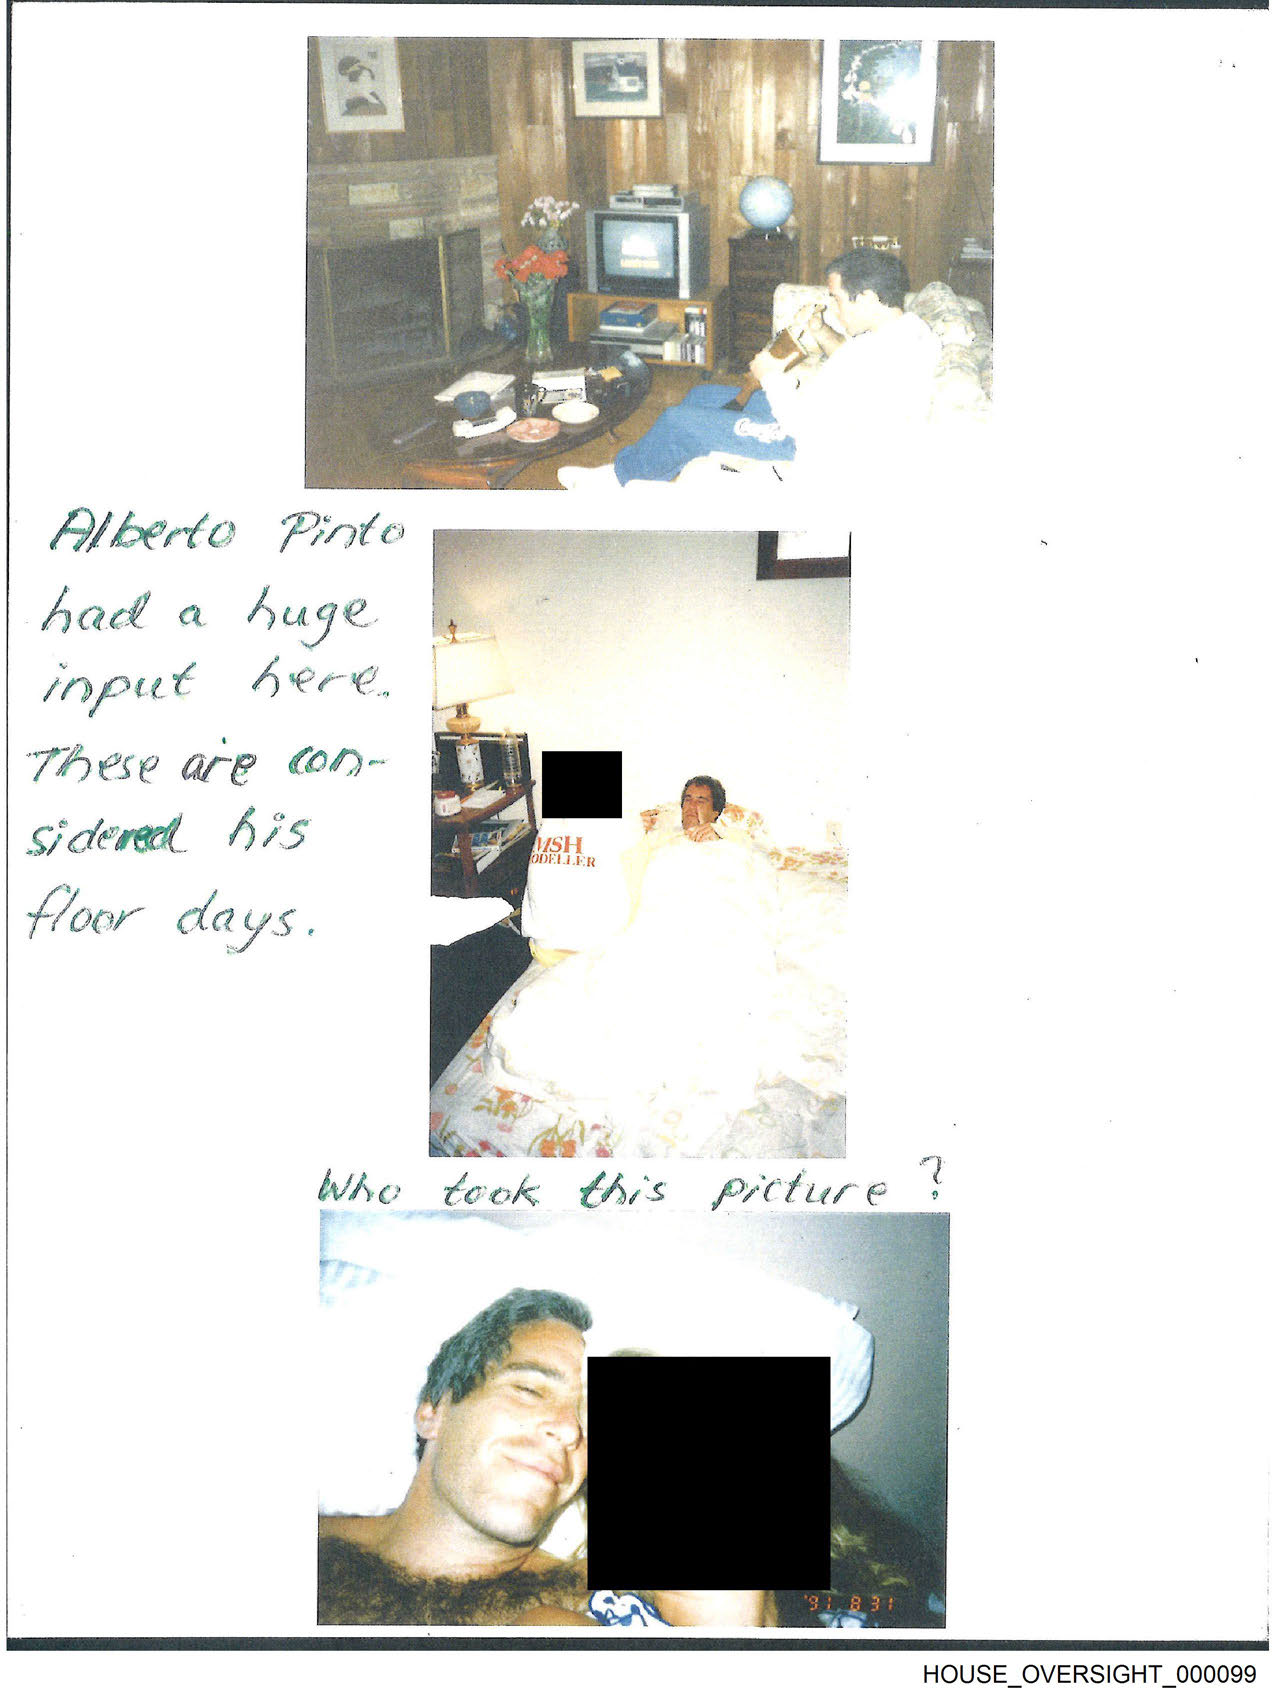 Alberto Pinto
had a huge
input here.
These are con-
sidered his
floor days.
MSH
ODELLER
Who took this picture?
'91 8 31
HOUSE_OVERSIGHT_000099